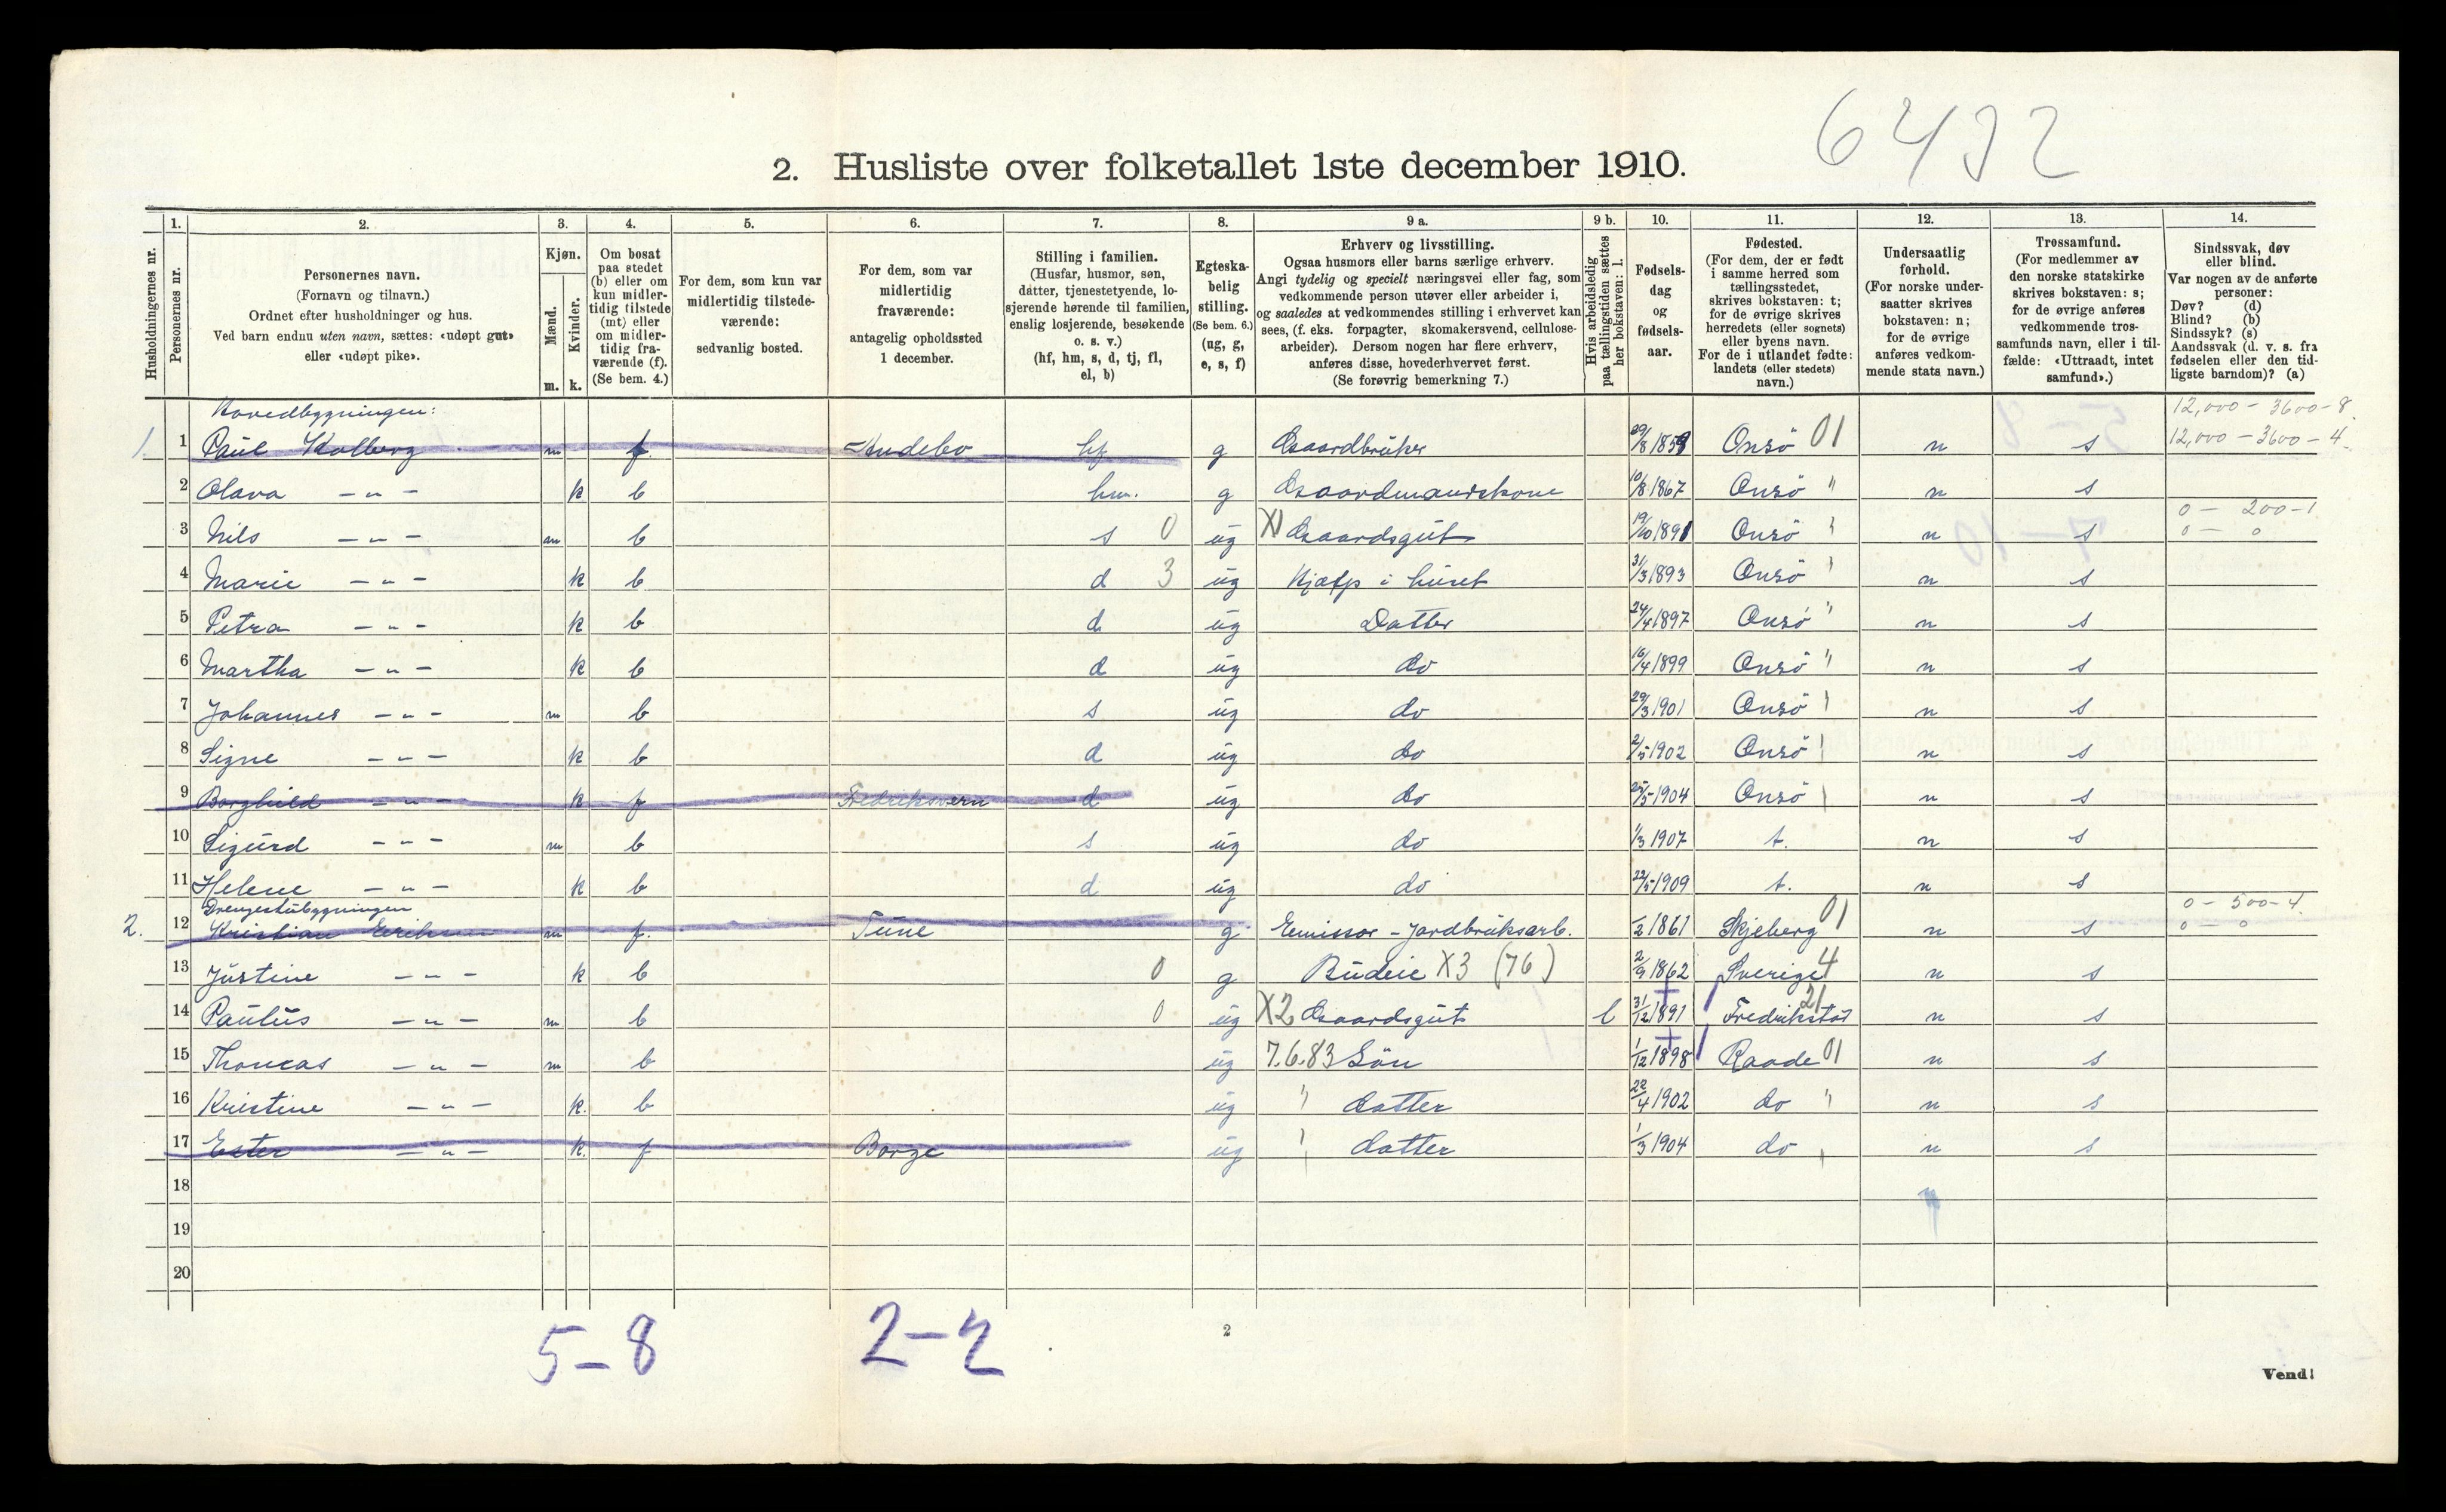 6432
2. Husliste over folketallet 1ste december 1910.
1. 2. 3. 4. 5. 6. 7. 8. 9 a. 9 b. 10. 11. 12. 13. 14.
Husholdningernes nr.
Personernes nr.
Personernes navn.
(Fornavn og tilnavn.)
Ordnet efter husholdninger og hus.
Ved barn endnu uten navn, sættes: «udøpt gut»
eller «udøpt pike».
Kjøn.
Mænd.
Kvinder.
m. k.
Om bosat
paa stedet
(b) eller om
kun midler-
tidig tilstede
(mt) eller
om midler-
tidig fra-
værende (f).
(Se bem. 4.)
For dem, som kun var
midlertidig tilstede-
værende:
sedvanlig bosted.
For dem, som var
midlertidig
fraværende:
antagelig opholdssted
1 december.
Stilling i familien.
(Husfar, husmor, søn,
datter, tjenestetyende, lo-
sjerende hørende til familien,
enslig losjerende, besøkende
o. s. v.)
(hf, hm, s, d, tj, fl,
el, b)
Egteska-
belig
stilling.
(Se bem. 6.)
(ug, g,
e, s, f)
Erhverv og livsstilling.
Ogsaa husmors eller barns særlige erhverv.
Angi tydelig og specielt næringsvei eller fag, som
vedkommende person utøver eller arbeider i,
og saaledes at vedkommendes stilling i erhvervet kan
sees, (f. eks. forpagter, skomakersvend, cellulose-
arbeider). Dersom nogen har flere erhverv,
anføres disse, hovederhvervet først.
(Se forøvrig bemerkning 7.)
Hvis arbeidsledig
paa tællingstiden sættes
her bokstaven: l.
Fødsels-
dag
og
fødsels-
aar.
Fødested.
(For dem, der er født
i samme herred som
tællingsstedet,
skrives bokstaven: t;
for de øvrige skrives
herredets (eller sognets)
eller byens navn.
For de i utlandet fødte:
landets (eller stedets)
navn.)
Undersaatlig
forhold.
(For norske under-
saatter skrives
bokstaven: n;
for de øvrige
anføres vedkom-
mende stats navn.)
Trossamfund.
(For medlemmer av
den norske statskirke
skrives bokstaven: s;
for de øvrige anføres
vedkommende tros-
samfunds navn, eller i til-
fælde: «Uttraadt, intet
samfund».)
Sindssvak, døv
eller blind.
Var nogen av de anførte
personer:
Døv? (d)
Blind? (b)
Sindssyk? (s)
Aandssvak (d. v. s. fra
fødselen eller den tid-
ligste barndom)? (a)
Hovedbygningen: 12,000 - 3600 - 8.
1. 1 Paul Kolberg m f Andebo hf g Gaardbruker 29/8 1859 Onsö 01 n s 12,000 - 3600 - 4.
2 Olava - " - k b hm. g Gaardmandskone 10/8 1867 Onsö " n s
0 - 200 - 1
3 Nils - " - m b s 0 ug X1 Gaardsgut 19/10 1891 Onsö " n s 0 - 0
4 Marie - " - k b d 3 ug Hjælp i huset 31/3 1893 Onsö " n s
5 Petra - " - k b d ug Datter 24/4 1897 Onsö " n s
6 Martha - " - k b d ug do 16/4 1899 Onsö " n s
7 Johannes - " - m b s ug do 29/3 1901 Onsö " n s
8 Signe - " - k b d ug do 2/5 1902 Onsö " n s
9 Borghild - " - k f Fredriksvern d ug do 25/5 1904 Onsö " n s
10 Sigurd - " - m b s ug do 1/3 1907 t. n s
11 Helene - " - k b d ug do 22/5 1909 t. n s
Drengestubygningen 0 - 500 - 4.
2. 12 Kristian Eriksen m f. Tune g Emissær - Jordbruksarb. /2 1861 Skjeberg 01 n s 0 - 0
13 Justine - " - k b 0 g Budeie X3 (76) 2/9 1862 Sverige 4 n s
14 Paulus - " - m b 0 ug X2 Gaardsgut l 31/12 1891 Fredrikstad 21 n s
15 Thomas - " - m b ug 7.6.83 Sön 1/12 1898 Raade 01 n s
16 Kristine - " - k. b ug " datter 22/4 1902 do " n s
17 Ester - " - k. f Borge ug " datter 1/3 1904 do " n s
18
19
20
5 - 8 2 - 2
2
Vend!